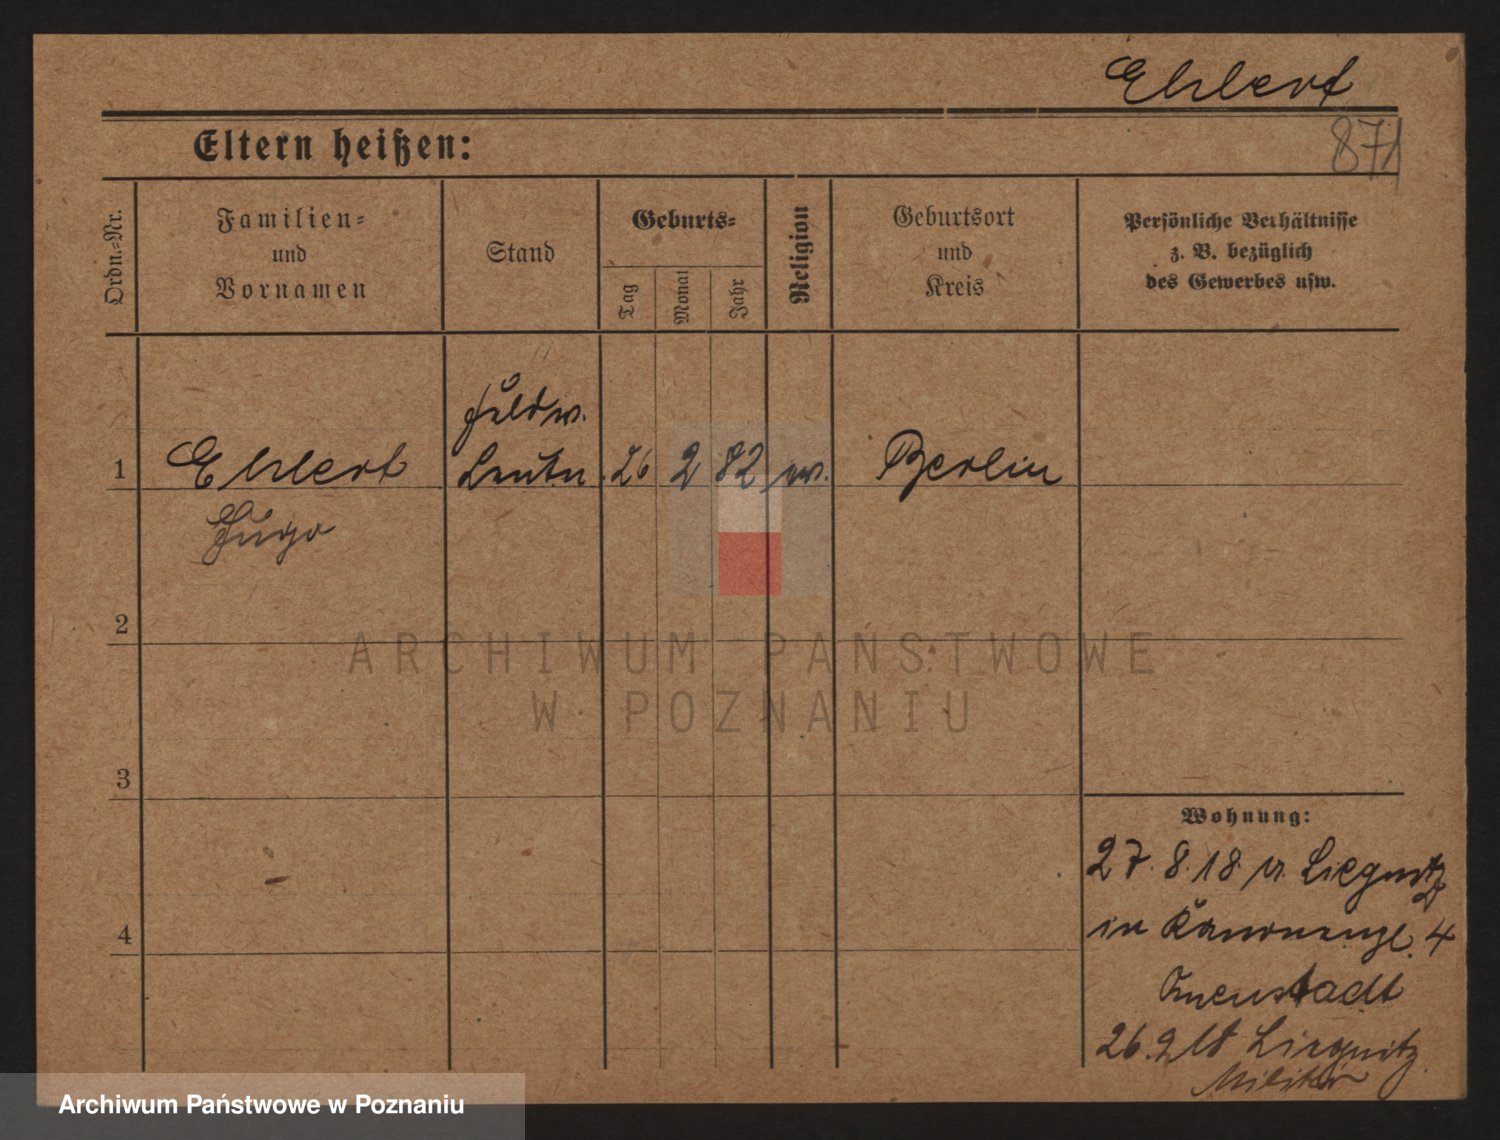 Ehlert
871
Eltern heißen:
Ordn.-Nr.
Familien-
und
Vornamen
Stand
Geburts-
Tag
Monat
Jahr
Religion
Geburtsort
und
Kreis
Persönliche Verhältnisse
z. B. bezüglich
des Gewerbes usw.
Feldw.
1 Ehlert Leutn. 26 2 82 ev. Berlin
Hugo
2
3
4
Wohnung:
27.8.18 v. Liegnitz
in Kanonengl. 4
26.9 Liegnitz
Militär
ARCHIWUM PAŃSTWOWE
W POZNANIU
Archiwum Państwowe w Poznaniu